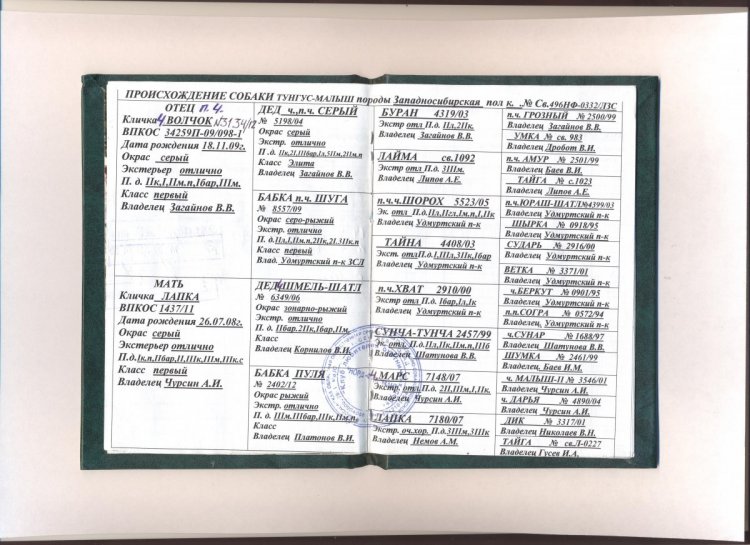 ПРОИСХОЖДЕНИЕ СОБАКИ ТУНГУС-МАЛЫШ породы Западносибирская пол к. ,№ Св.496НФ-0332/ЛЗС
ОТЕЦ п.ч.
Кличка ч ВОЛЧОК №3134/12
ВПКОС 34259П-09/098-1
Дата рождения 18.11.09г.
Окрас серый
Экстерьер отлично
П. д. IIк,I,IIм.п,Iбар,IIIм.
Класс первый
Владелец Загайнов В.В.
МАТЬ
Кличка ЛАПКА
ВПКОС 1437/11
Дата рождения 26.07.08г.
Окрас серый
Экстерьер отлично
П.д.Iк.п,IIбар,II,IIIк,IIIм,IIIк.с
Класс первый
Владелец Чурсин А.И.
ДЕД ч.,п.ч. СЕРЫЙ
№ 5198/04
Окрас серый
Экстр. отлично
Класс Элита
Владелец Загайнов В.В.
БАБКА п.ч. ШУГА
№ 8557/09
Окрас серо-рыжий
Экстр. отлично
П. д.IIл,I,IIм.п,2IIк,2I,3IIк.п
Класс первый
Влад. Удмуртский п-к ЗСЛ
ДЕД ч ШМЕЛЬ-ШАТЛ
№ 6349/06
Окрас зонарно-рыжий
Экстр. отлично
П. д. IIбар,2IIк,Iбар,IIм,
Класс
Владелец Корнилов В.И.
БАБКА ПУЛЯ
№ 2402/12
Окрас рыжий
Экстр. отлично
П. д. IIIм,IIIбар,IIк,IIм.п,
Класс
Владелец Платонов В.И.
БУРАН 4319/03
Экстр отл П.д. IIл,2IIк,
Владелец Загайнов В.В.
ЛАЙМА св.1092
Экстр отл П.д. 3IIIм.
Владелец Липов А.Е.
п.ч.ч.ШОРОХ 5523/05
Эк. отл П.д.IIл,IIгл,Iм.п,I,IIк
Владелец Удмуртский п-к
ТАЙНА 4408/03
Экст. отлП.д.I,IIл,3IIк,Iбар
Владелец Удмуртский п-к
п.ч.ХВАТ 2910/00
Экстр отл П.д. Iбар,Iл,Iк
Владелец Удмуртский п-к
СУНЧА-ТУНЧА 2457/99
Эк. отл. П.д. IIл,IIк,IIм.п,IIIб
Владелец Шатунова В.В.
ч.МАРС 7148/07
Экстр. отл П.д. 2II,IIIм,I,IIк,
Владелец Чурсин А.И.
ЛАПКА 7180/07
Экстр. оч.хор. П.д.3IIIм,3IIIк
Владелец Немов А.М.
п.ч. ГРОЗНЫЙ № 2500/99
Владелец Загайнов В.В.
УМКА № св. 983
Владелец Дробот В.И.
п.ч. АМУР № 2501/99
Владелец Баев В.И.
ТАЙГА № с.1023
Владелец Липов А.Е.
п.ч.ЮРАШ-ШАТЛ№4399/03
Владелец Удмуртский п-к
ЩЫРКА № 0918/95
Владелец Удмуртский п-к
СУДАРЬ № 2916/00
Владелец Удмуртский п-к
ВЕТКА № 3371/01
Владелец Удмуртский п-к
ч.БЕРКУТ № 0901/95
Владелец Удмуртский п-к
п.п.СОГРА № 0572/94
Владелец Удмуртский п-к
ч.СУНАР № 1688/97
Владелец Шатунова В.В.
ШУМКА № 2461/99
Владелец Баев А.М.
ч. МАЛЫШ-II № 3546/01
Владелец Чурсин А.И.
ч. ДАРЬЯ № 4890/04
Владелец Чурсин А.И.
ДИК № 3317/01
Владелец Николаев В.Н.
ТАЙГА № св.Л-0227
Владелец Гусев И.А.